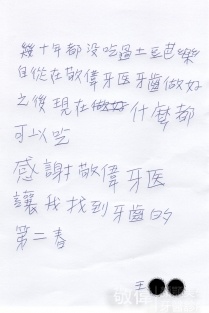 幾十年都没吃過土豆芭樂
自從在敬偉牙医牙齒做好
之後現在做好什麼都
可以吃
感謝敬偉牙医
讓我找到牙齒的
第二春
王
敬偉